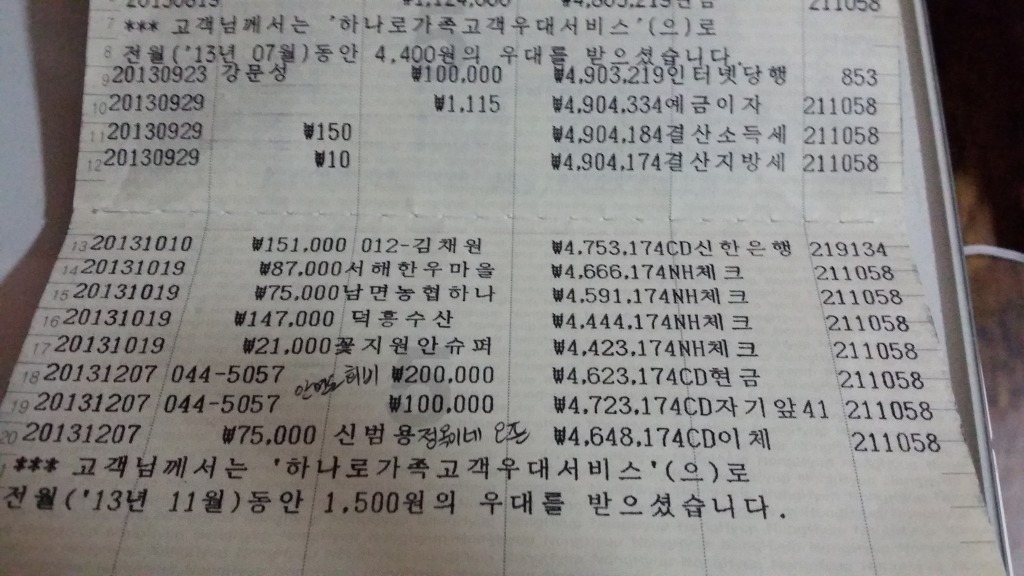 4,803,219 211058
7 *** 고객님께서는 '하나로가족고객우대서비스'(으)로
8 전월('13년 07월)동안 4,400원의 우대를 받으셨습니다.
9 20130923 강문성 ₩100,000 ₩4,903,219인터넷당행 853
10 20130929 ₩1,115 ₩4,904,334예금이자 211058
11 20130929 ₩150 ₩4,904,184결산소득세 211058
12 20130929 ₩10 ₩4,904,174결산지방세 211058
13 20131010 ₩151,000 012-김채원 ₩4,753,174CD신한은행 219134
14 20131019 ₩87,000서해한우마을 ₩4,666,174NH체크 211058
15 20131019 ₩75,000남면농협하나 ₩4,591,174NH체크 211058
16 20131019 ₩147,000 덕흥수산 ₩4,444,174NH체크 211058
17 20131019 ₩21,000꽃지원안슈퍼 ₩4,423,174NH체크 211058
18 20131207 044-5057 회비 ₩200,000 ₩4,623,174CD현금 211058
19 20131207 044-5057 ₩100,000 ₩4,723,174CD자기앞41 211058
20 20131207 ₩75,000 신범용 ₩4,648,174CD이체 211058
*** 고객님께서는 '하나로가족고객우대서비스'(으)로
전월('13년 11월)동안 1,500원의 우대를 받으셨습니다.